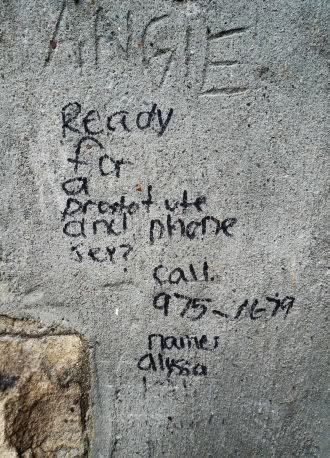 ANGIE
Ready
for
a
prostitute
and phone
sex?
call
975-1679
name:
alyssa